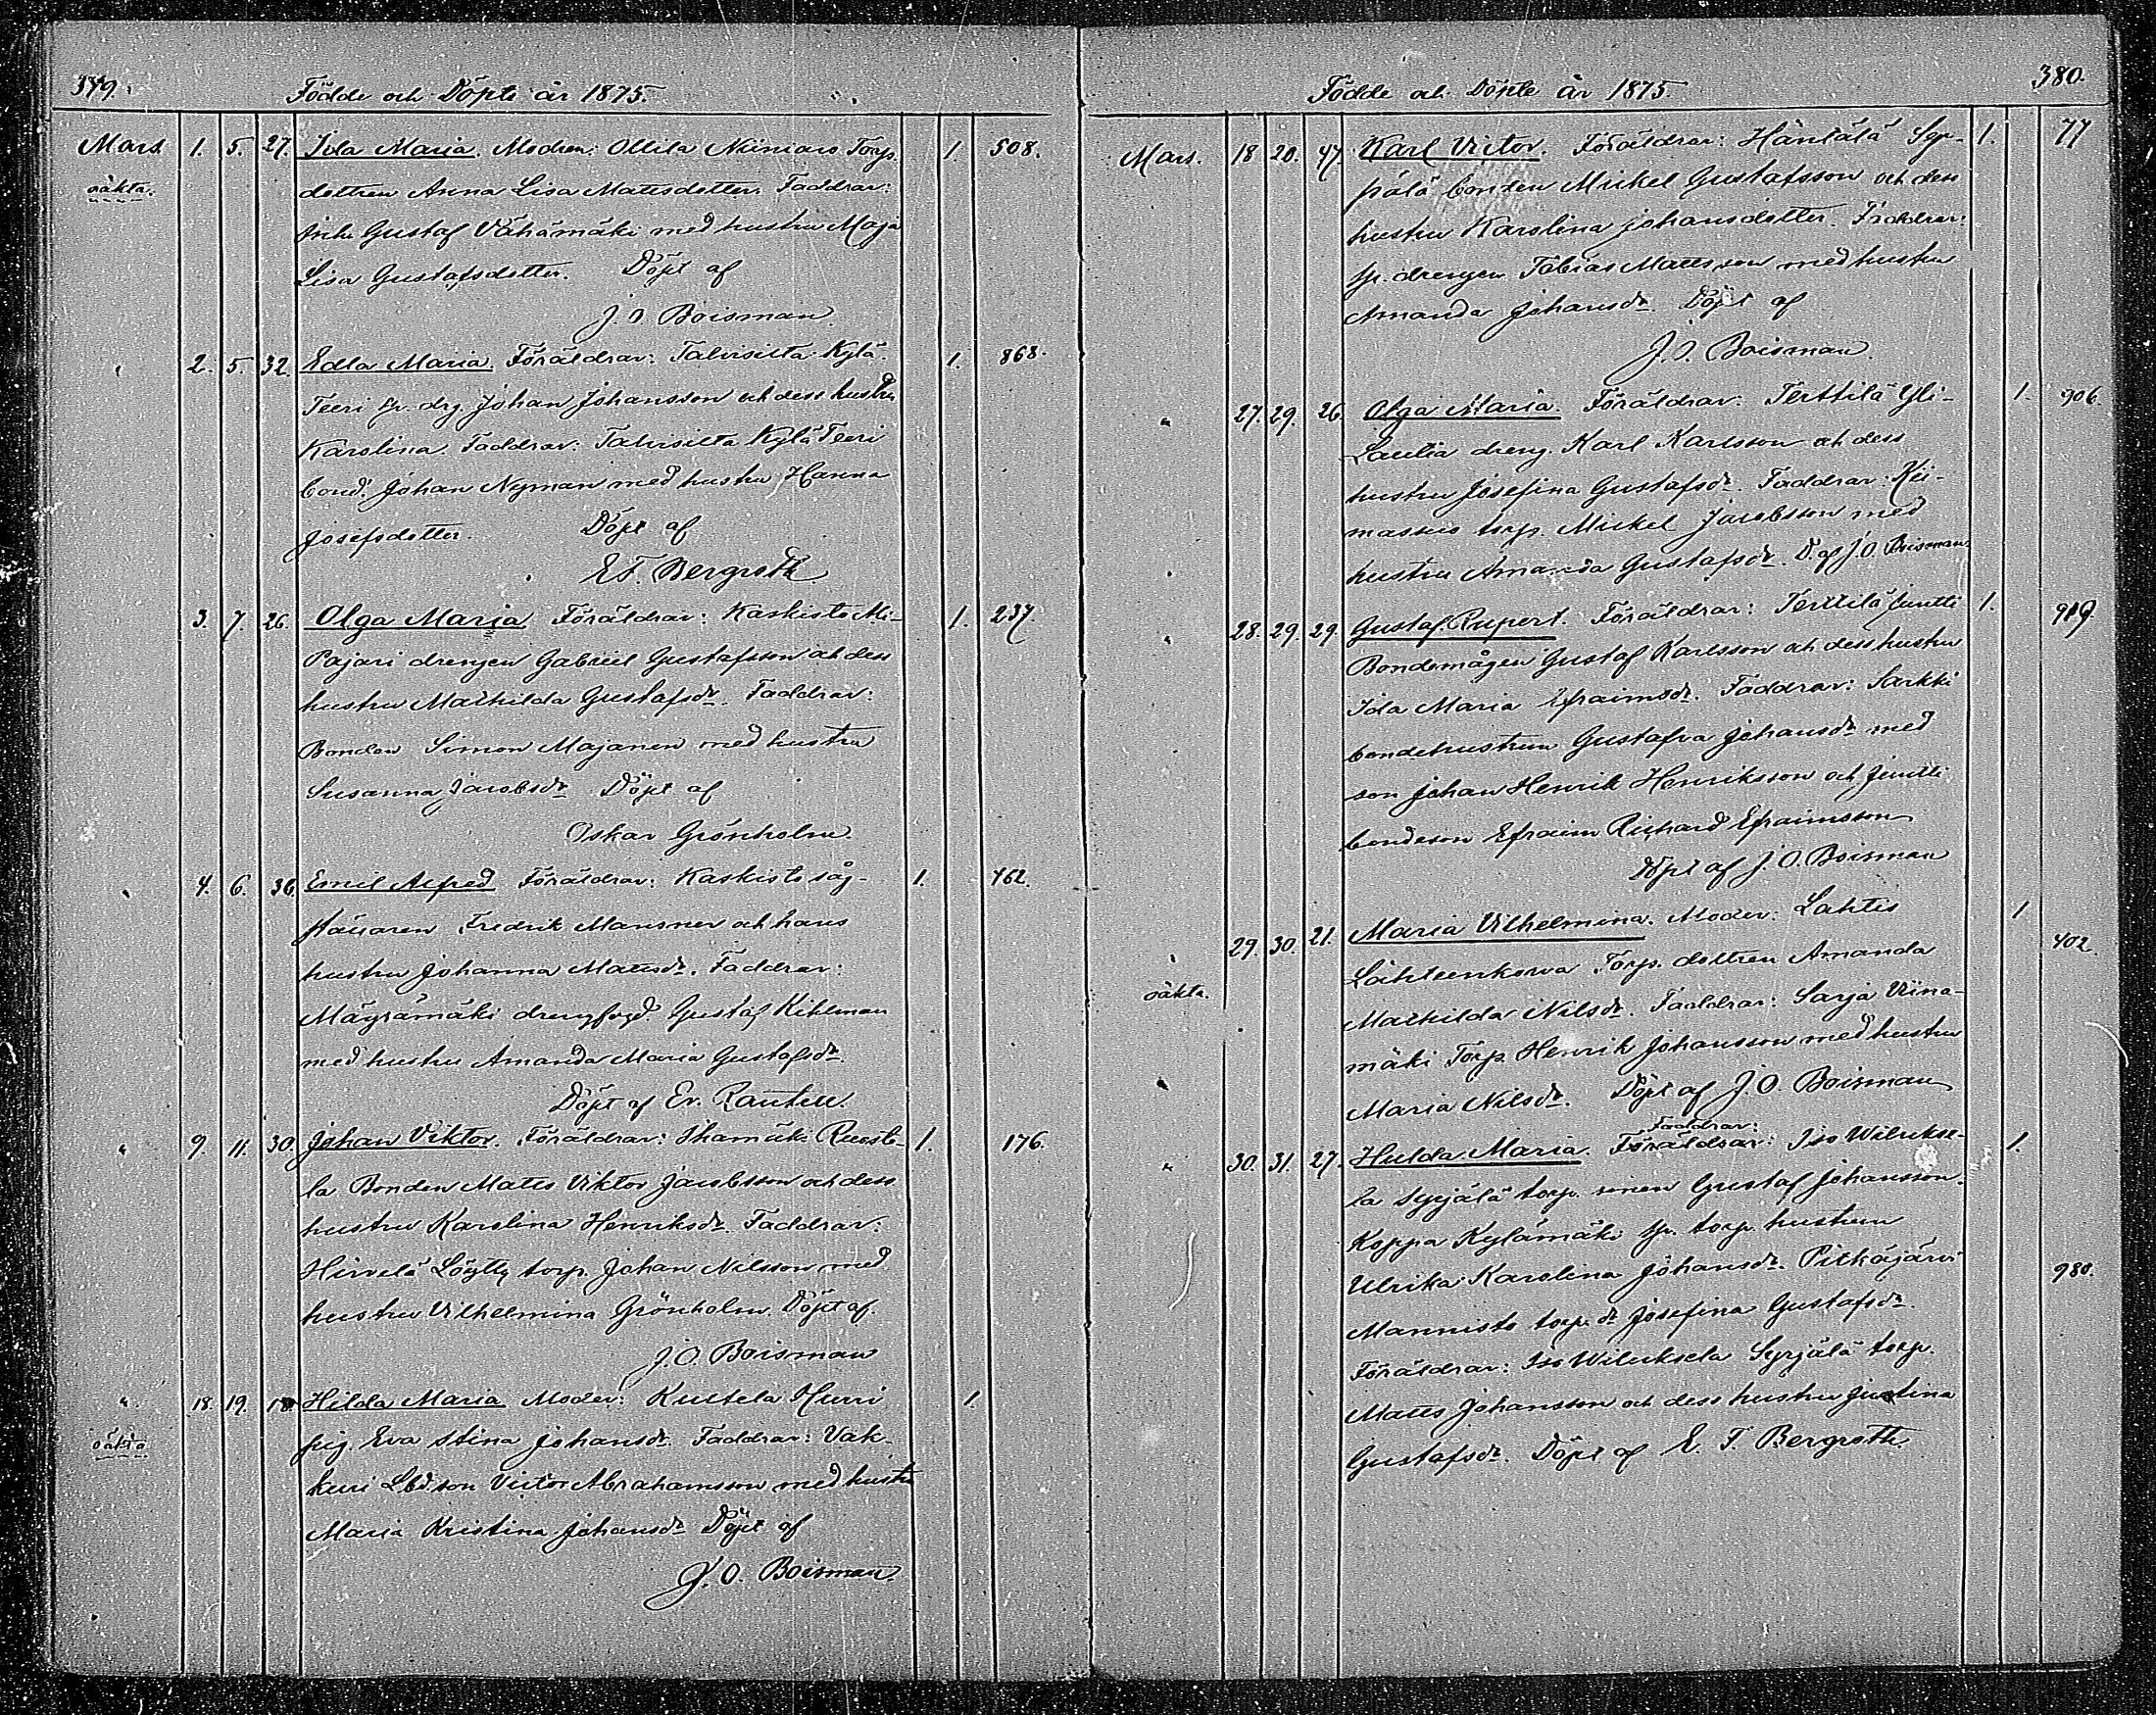 379.
Födde och Döpte år 1875.
Mars 1. 5. 27. Ida Maria. Modren: Ollila Torp. 1. 508.
oäkta. dottren Anna Lisa Mattsdotter. Faddrar:
Inh. Gustaf Vähämäki med hustru Maja
Lisa Gustafsdotter. Döpt af
J. O. Boisman.
" 2. 5. 32. Edla Maria. Föräldrar: Talvisilta Kylä 1. 868.
Teeri sp. drg. Johan Johansson och dess hustru
Karolina. Faddrar: Talvisilta Kylä Teeri
bond. Johan Nyman med hustru Hanna
Josefsdotter. Döpt af
E. F. Bergroth
3. 7. 26. Olga Maria Föräldrar: Kaskisto Ali- 1. 237.
Pajari drengen Gabriel Gustafsson och dess
hustru Mathilda Gustafsdr. Faddrar:
Bonden Simon Majanen med hustru
Susanna Jacobsdr. Döpt af
Oskar Grönholm.
" 4. 6. 36. Emil Alfred Föräldrar: Kaskisto såg- 1. 462.
ställaren Fredrik Mansner och hans
hustru Johanna Mattsdr. Faddrar:
Mäyrämäki drengfogd. Gustaf Kihlman
med hustru Amanda Maria Gustafsdr.
Döpt af Ev. Rauten.
" 9. 11. 30. Johan Viktor. Föräldrar: Ihamäki Ruosto- 1. 176.
la Bonden Matts Viktor Jacobsson och dess
hustru Karolina Henriksdr. Faddrar:
Hirvelä Löytty torp. Johan Nilsson med
hustru Vilhelmina Grönholm. Döpt af.
J. O. Boisman
" 18. 19. 18. Hilda Maria Moder: Kuttela Hurri 1.
oäkta pig. Eva Stina Johansdr. Faddrar: Vak-
kuri Lbd. son Victor Abrahamsson med hustru
Maria Kristina Johansdr. Döpt af
J. O. Boisman.
380.
Födde och Döpte år 1875.
Mars. 18 20. 47. Karl Victor. Föräldrar: Häntälä Sep- 1. 77
pälä bonden Mickel Gustafsson och dess
hustru Karolina Johansdotter. Faddrar:
sp. drengen Tobias Mattsson med hustru
Amanda Johansdr. Döpt af
J. O. Boisman.
" 27. 29. 26. Olga Maria. Föräldrar: Terttilä Yli- 1. 906.
Lautia dreng. Karl Karlsson och dess
hustru Josefina Gustafsdr. Faddrar: Kii-
massuo torp. Mickel Jacobsson med
hustru Amanda Gustafsdr. D. af J. O. Boisman.
" 28. 29. 29. Gustaf Rupert. Föräldrar: Terttilä Juntti 1. 919.
Bondemågen Gustaf Karlsson och dess hustru
Ida Maria Efraimsdr. Faddrar: Sarkki
bondehustrun Gustafva Johansdr. med
son Johan Henrik Henriksson och Juntti
bondeson Efraim Richard Efraimsson
Döpt af J. O. Boisman
" 29. 30. 21. Maria Vilhelmina. Moder: Lahtis 1 402.
oäkta. Lähteenkorva Torp. dottren Amanda
Mathilda Nilsdr. Faddrar: Sarja Viina-
mäki Torp. Henrik Johansson med hustru
Maria Nilsdr. Döpt af J. O. Boisman
Faddrar:
" 30. 31. 27. Hulda Maria. Föräldrar: Iso Wilukse- 1.
la Syrjälä torp. sonen Gustaf Johansson.
Koppa Kylämäki sp. torp. hustrun
Ulrika Karolina Johansdr. Pitkäjärvi 980.
Mannisto torp. dr. Josefina Gustafsdr.
Föräldrar: Iso Wiluksela Syrjälä torp.
Matts Johansson och dess hustru Justina
Gustafsdr. Döpt af E. F. Bergroth.